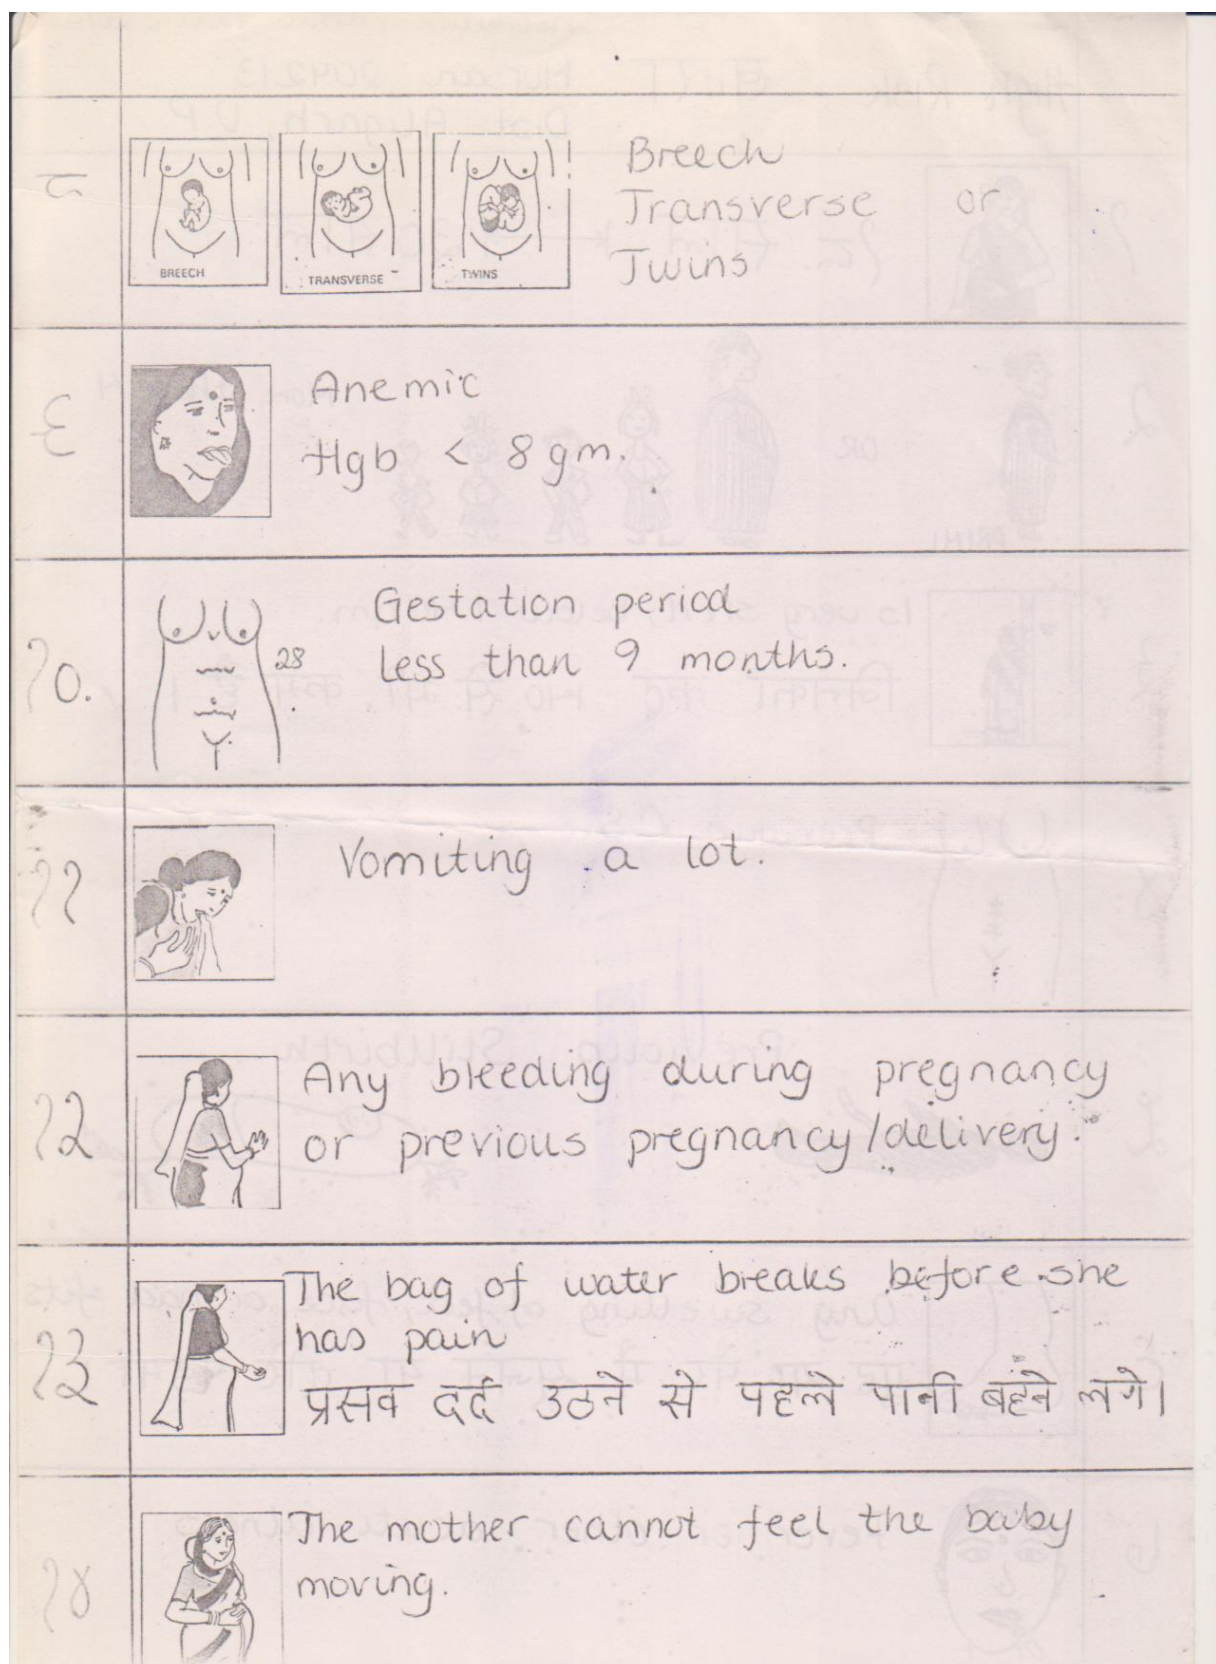 ८
BREECH
TRANSVERSE
TWINS
Breech
Transverse or
Twins
९
Anemic
Hgb < 8 gm.
१०.
28
Gestation period
less than 9 months.
११
Vomiting a lot.
१२
Any bleeding during pregnancy
or previous pregnancy/delivery.
१३
The bag of water breaks before she
has pain
प्रसव दर्द उठने से पहले पानी बहने लगे।
१४
The mother cannot feel the baby
moving.